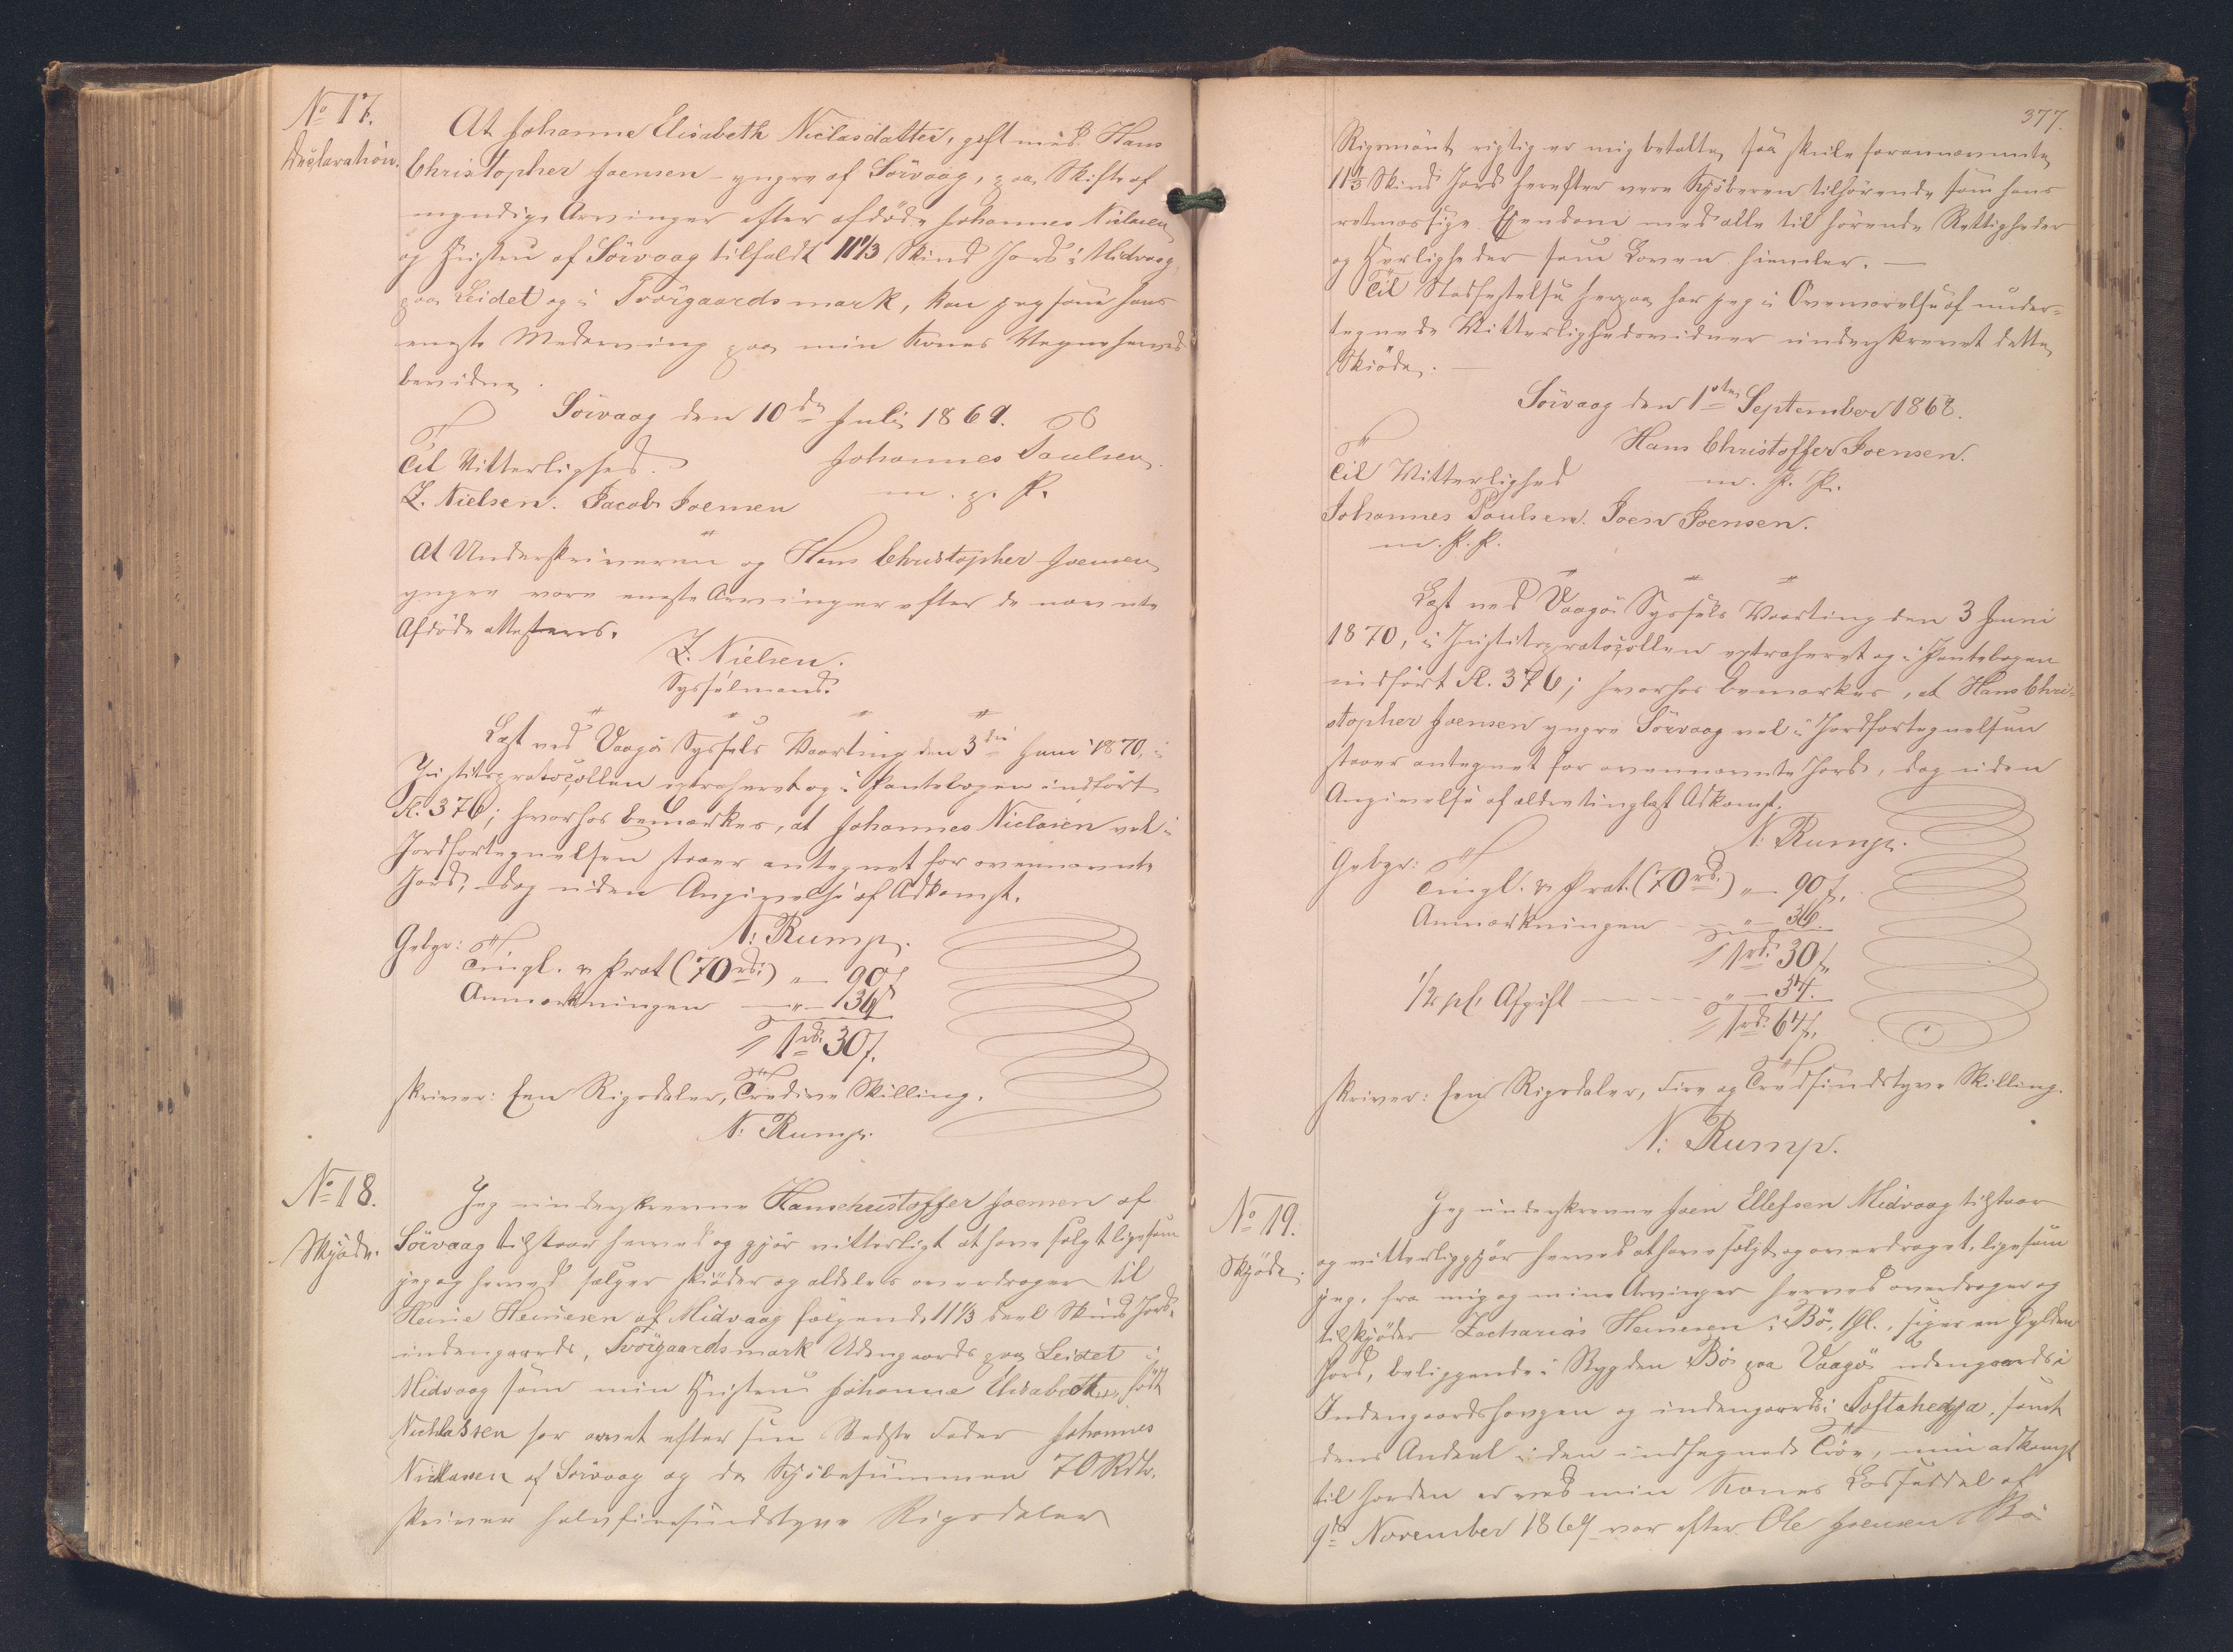 No 17.
Declaration.
At Johanne Elisabeth Niclasdatter, gift med Hans
Christopher Joensen - yngre af Sörvaag, paa Skifte af
myndige Arvinger efter afdöde Johannes Niclasen
og Hustru af Sörvaag tilfaldt 11 1/3 Skind Jord i Midvaag,
paa Leidet og i Tvörgaards mark, kan jeg som hans
eneste Medarving paa min Kones Vegne herved
bevidne.
Sörvaag den 10de Juli 1869.
Johannes Poulsen.
m. p. P.
Til Vitterlighed.
Z. Nielsen. Jacob Joensen
At Underskriveren og Hans Christopher Joensen
yngre vare eneste Arvinger efter de nævnte
Afdöde attesteres.
Z. Nielsen.
Sysselmand.
Læst ved Vaagö Syssels Vaarting den 3die Juni 1870, i
Justitsprotocollen extraheret og i Pantebogen indfört
Fl. 376; hvorhos bemærkes, at Johannes Niclasen vel i
Jordfortegnelsen staaer antegnet for ovennævnte
Jord, dog uden Angivelse af Adkomst.
N: Rump.
Gebyr:
Tingl. & Prot (70 rd:) " - 90 s
Anmærkningen - " - 36 s
1 rd. 30 s.
skriver: Een Rigsdaler, Tredive Skilling.
N: Rump.
No 18.
Skjöde.
Jeg underskrevne Hanschristoffer Joensen af
Sörvaag tilstaar herved og gjör vitterligt at have solgt ligesom
jeg og herved sælger skiöder og aldeles overdrager til
Heine Heinesen af Midvaag fölgende 11 1/3 deel Skind Jord
indengaards, Tvörgaardsmark Udengaards paa Leidet i
Midvaag som min Hustru Johanne Elisabeth födt
Nichlassen har arvet efter sin Bedste Fader Johannes
Nicklasen af Sörvaag og da Kjöbesummen 70 Rdlr.
skriver halvfiresindstyve Rigsdaler
377.
Rigsmönt rigtig er mig betalte, saa skule forannævnte
11 1/3 Skind Jord herefter være Kjöberen tilhörende som hans
retmæssige Eiendom med alle til hörende Rettigheder
og Herligheder som Loven hiemler. —
Til Stadfestelse herpaa har jeg i Overværelse af under-
tegnede Vitterlighedsvidner underskrevet dette
Skiöde. —
Sörvaag den 1ste September 1868.
Hans Christoffer Joensen.
m. p. P.
Til Vitterlighed
Johannes Poulsen. Joen Joensen.
m. p. P.
Læst ved Vaagö Syssels Vaarting den 3 Juni
1870, i Justitsprotocollen extraheret og i Pantebogen
indfört Fl. 376; hvorhos bemærkes, at Hans Chri-
stopher Joensen yngre Sörvaag vel i Jordfortegnelsen
staaer antegnet for ovennævnte Jord, dog uden
Angivelse af ældre tinglæst Adkomst.
N: Rump.
Gebyr:
Tingl. & Prot. (70 rd.) " - 90 s.
Anmærkningen - " - 36.
1 rd. 30 s.
1/2 pCt Afgift - - - - " - 34.
1 rd. 64 s.
skriver: Een Rigsdaler, Fire og Tredsindstyve Skilling.
N: Rump.
No 19.
Skjöde.
Jeg underskrevne Joen Ellefsen Midvaag tilstaar
og vitterliggjör herved at have solgt og overdraget, ligesom
jeg, fra mig og mine Arvinger herved overdrager og
tilskjöder Zacharias Heinesen i Bö, 1 Gl., siger en Gylden
Jord, beliggende i Bygden Bö paa Vaagö udengaards i
Indengaardshaugen og indengaards i Toftahegja, samt
dens Andeel i den indhegnede Tröe, min adkomst
til Jorden er ved min Kones Lodseddel af
9de November 1869 var efter Ole Joensen Bö